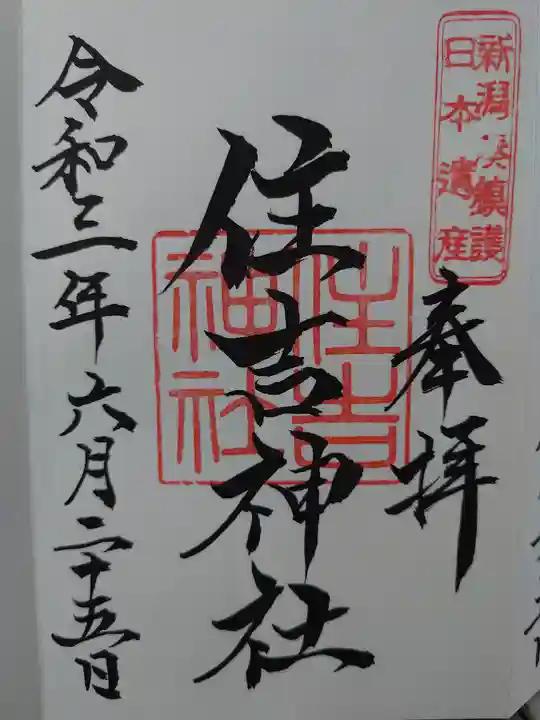 新潟湊鎮護
日本遺産
奉拝
住吉神社
住吉
神社
令和三年六月二十五日